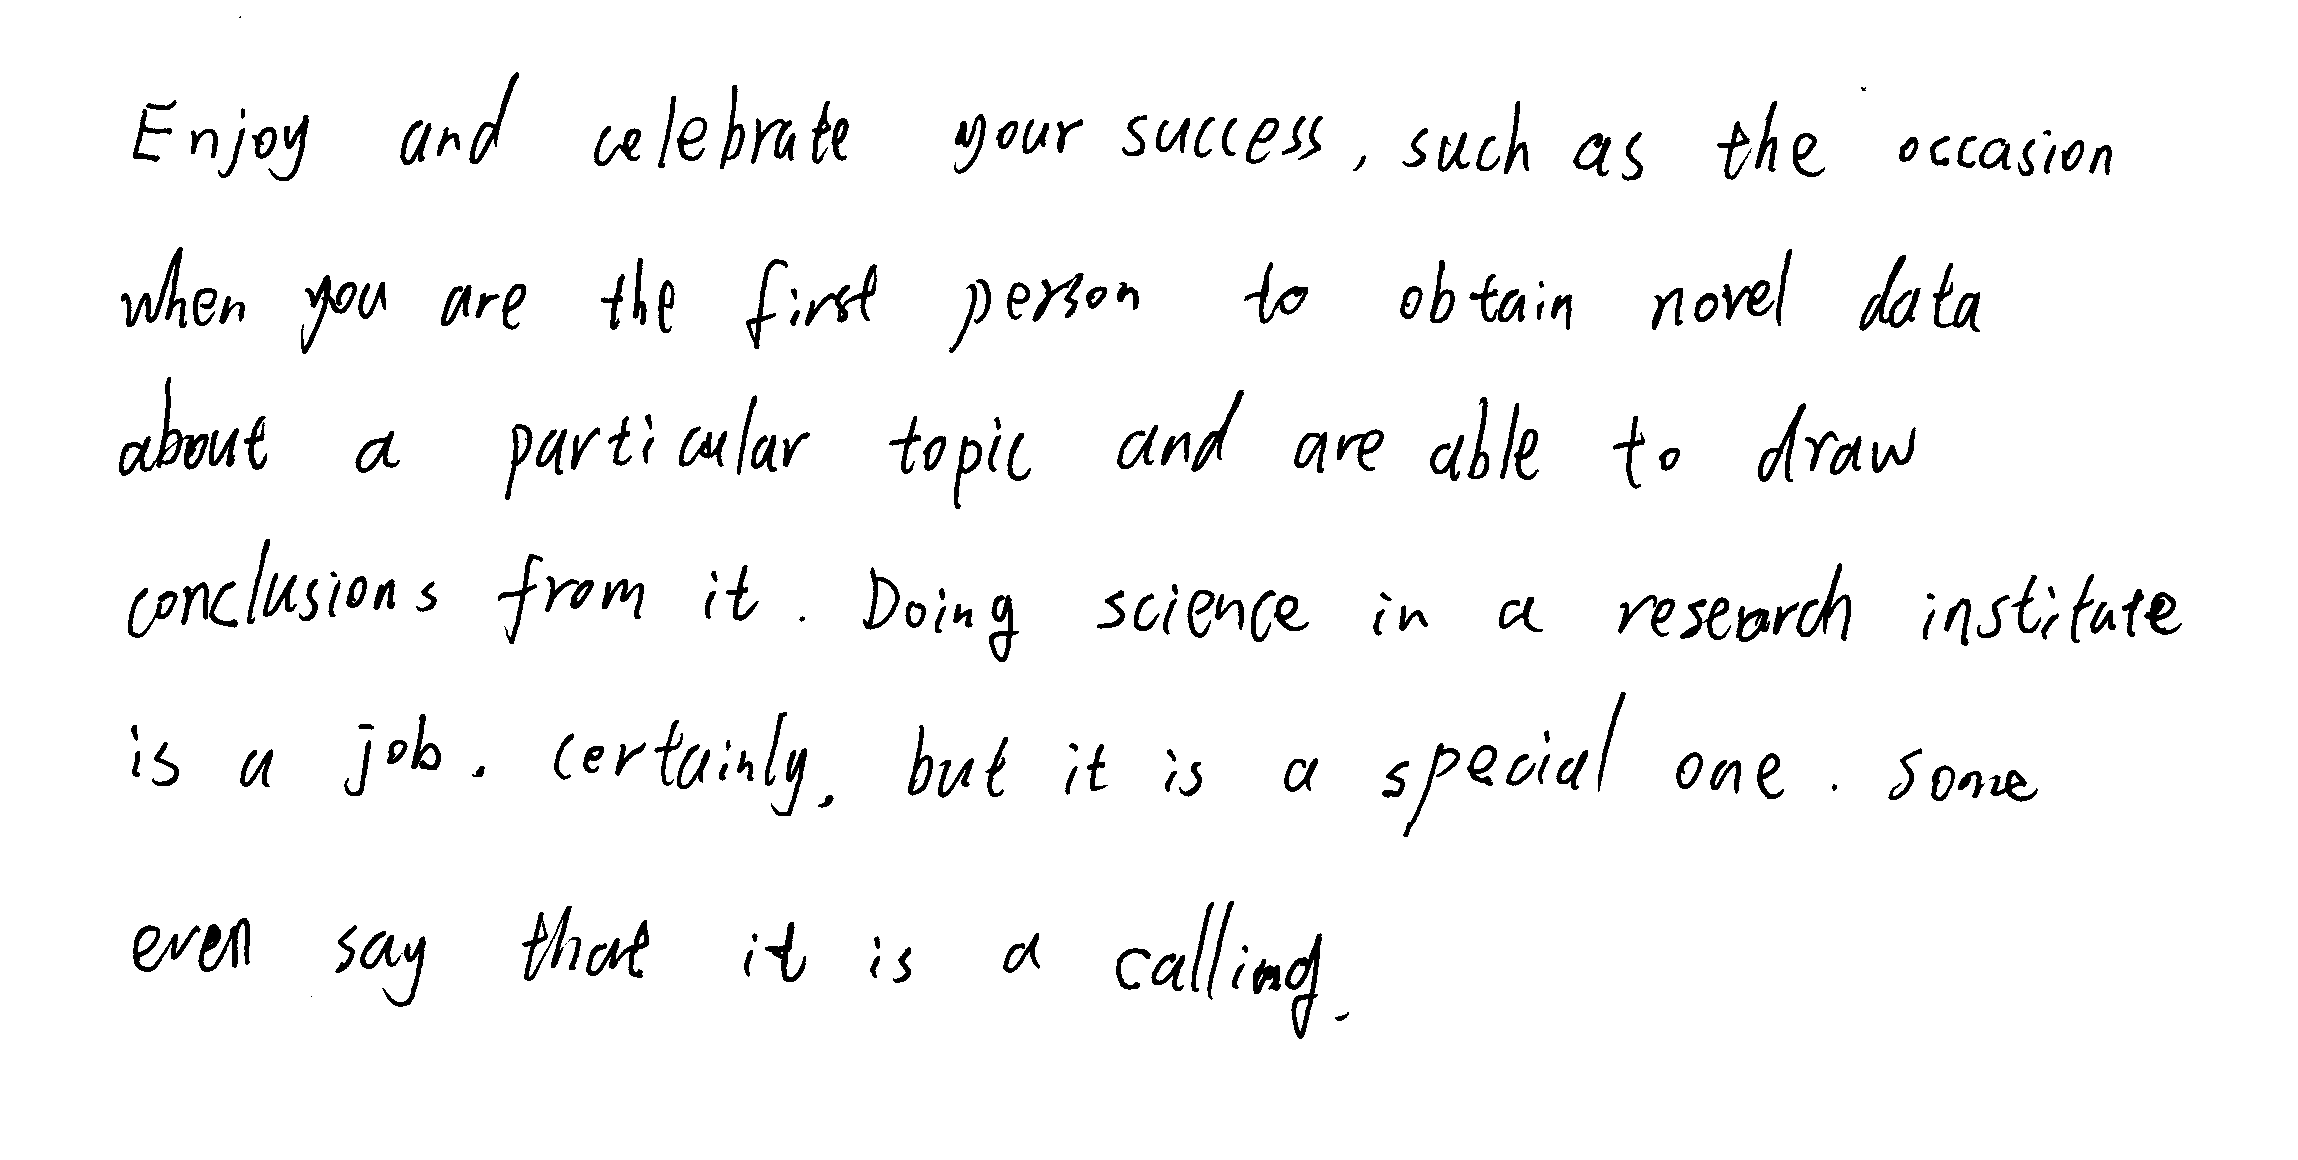 Enjoy and celebrate your success, such as the occasion
when you are the first person to obtain novel data
about a particular topic and are able to draw
conclusions from it. Doing science in a research institute
is a job. Certainly, but it is a special one. Some
even say that it is a calling.